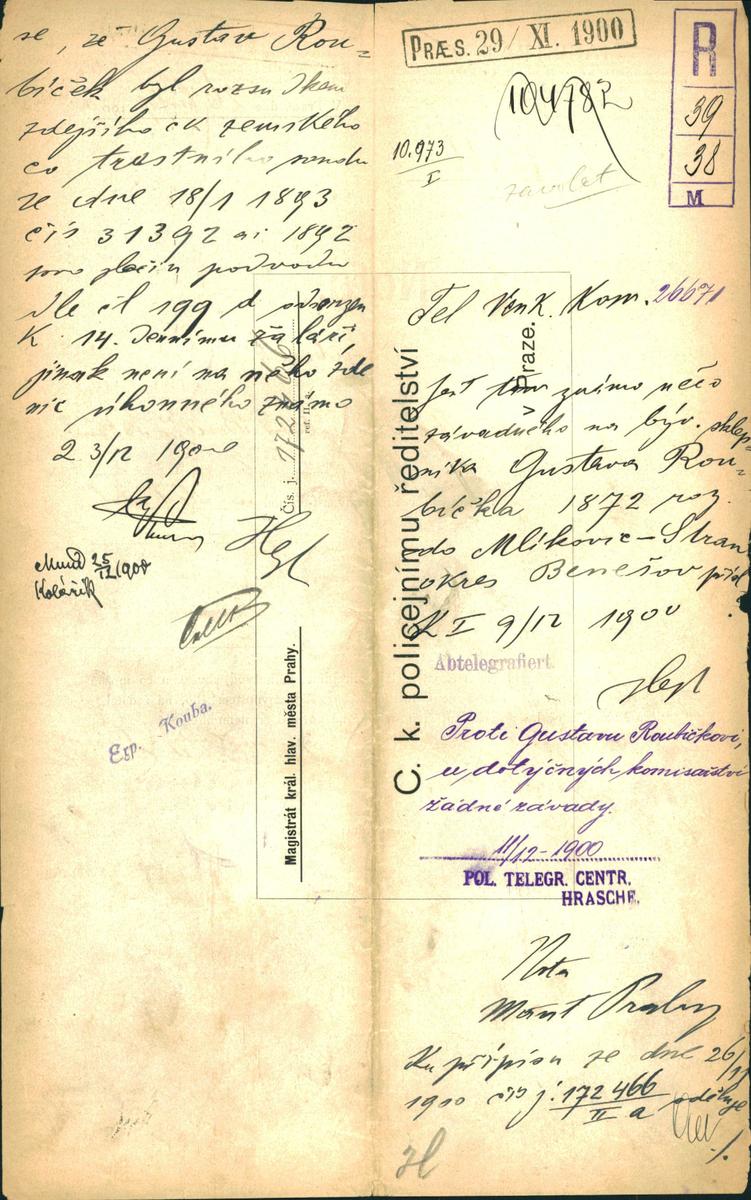 PRÆS. 29/XI. 1900
R
39
38
M
10.973
I
zavolat
Tel Venk. Kom. 26671
Jest tam známo něco
závadného na býv. sklep-
níka Gustava Rou-
bíčka 1872 roz.
do Mlíkovic-Stran
okres Benešov
K I 9/12 1900
Abtelegrafiert.
Proti Gustavu Roubíčkovi,
u dotyčných komisařství
žádné závady.
11/12-1900
POL. TELEGR. CENTR.
HRASCHE.
Nota
Mant Prahy
Ku přípisu ze dne 26/11
1900 čís j: 172466
II a
sděluje
./.
se, že Gustav Rou-
bíček byl rozsudkem
zdejšího ck zemského
co trestního soudu
ze dne 18/1 1893
čís 31392 ai 1892
pro zločin podvodu
dle čl 199 d odsouzen
K 14. dennímu žaláři,
jinak není na něho zde
nic úhonného známo
2 3/12 1900
25/12 1900
Kolářík
Exp. Kouba.
C. k. policejnímu ředitelství
v Praze.
Čís. j. 172466
ref. II.
Magistrát král. hlav. města Prahy.